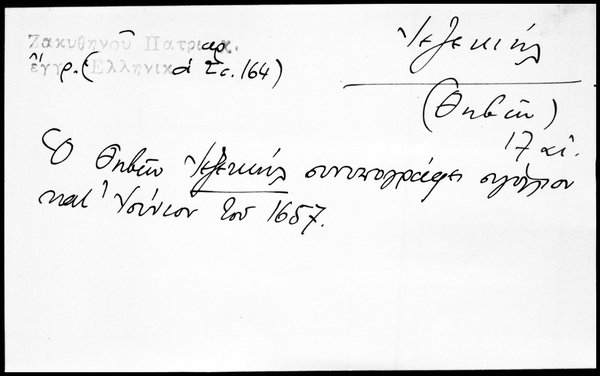 Ζακυθηνοῦ Πατριαρ.
ἔγγρ. (Ἑλληνικὰ Σ. 164)
Ἰεζεκιήλ
(Θηβῶν)
17 αἰ.
Ὁ Θηβῶν Ἰεζεκιήλ συνυπογράφει σιγίλλιον
κατ' Ἰούνιον τοῦ 1657.